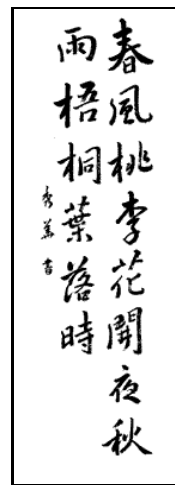 春風桃李花開夜秋
雨梧桐葉落時
秀美書